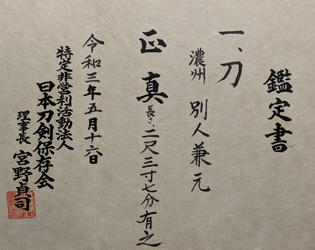 鑑定書
一、刀
濃州 別人兼元
正真 長さ 二尺三寸七分有之
令和三年五月十六日
特定非営利活動法人
日本刀剣保存会
理事長 宮野貞司